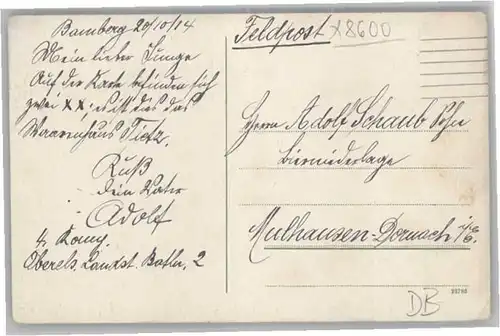 Bamberg 20/10/14
Mein lieber Junge
Auf der Karte befinden sich
zwei XX; es ist dies das
Waarenhaus Tietz.
Kuß
dein Vater
Adolf
4 Komp.
Oberels. Landst. Batln. 2
Feldpost
X8600
Herrn Adolf Schaub Sohn
Bierniederlage
Mulhausen-Dornach i/E.
DB